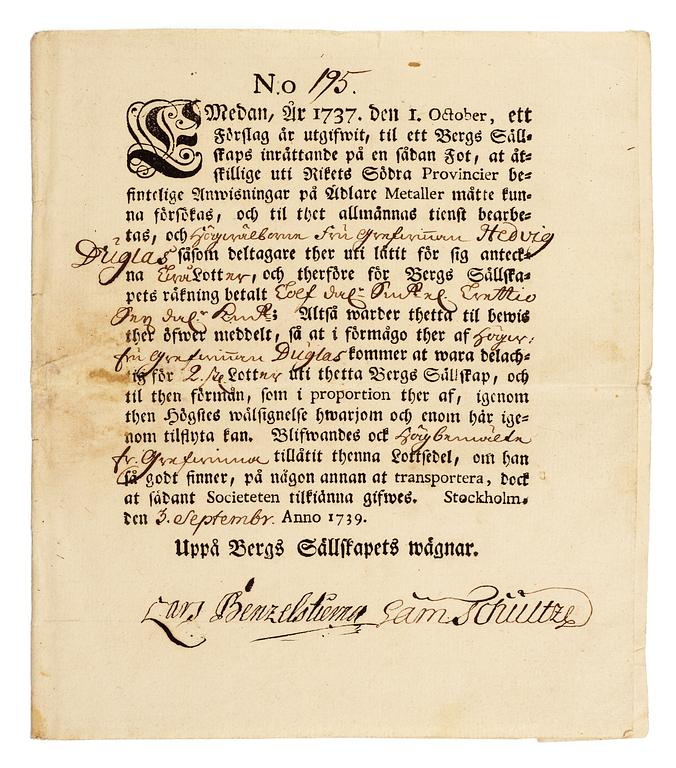 No 195.
EMedan, År 1737. den 1. October, ett
Förslag är utgifwit, til ett Bergs Säll-
skaps inrättande på en sådan Fot, at åt-
skillige uti Rikets Södra Provincier be-
fintelige Anwisningar på Ädlare Metaller måtte kun-
na försökas, och til thet allmännas tienst bearbe-
tas, och Högwälborne Fru Grefwinnan Hedvig
Duglas såsom deltagare ther uti låtit för sig anteck-
na Twå Lotter, och therföre för Bergs Sällska-
pets räkning betalt Tolf dalr Trettio
Sex dalr ; Altså warder thetta til bewis
ther öfwer meddelt, så at i förmågo ther af Högw:
fru Grefwinnan Duglas kommer at wara delach-
tig för 2. st. Lotter uti thetta Bergs Sällskap, och
til then förmån, som i proportion ther af, igenom
then Högstes wälsignelse hwarjom och enom här ige-
nom tilflyta kan. Blifwandes ock Högbemälte
fr. Grefwinna tillåtit thenna Lottsedel, om han
så godt finner, på någon annan at transportera, dock
at sådant Societeten tilkiänna gifwes. Stockholm,
den 3. Septembr. Anno 1739.
Uppå Bergs Sällskapets wägnar.
Lars Benzelstierna Sam Schultze